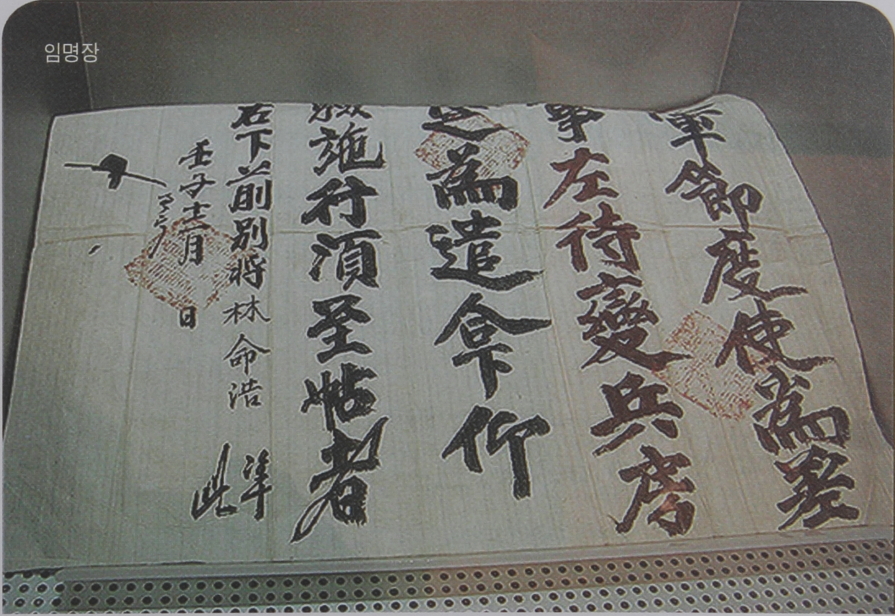 임명장
軍節度使爲差
事左待變兵房
爲遣合下仰
驗施行湏至帖者
右下前別將林命浩 準
此
壬子十二月 日